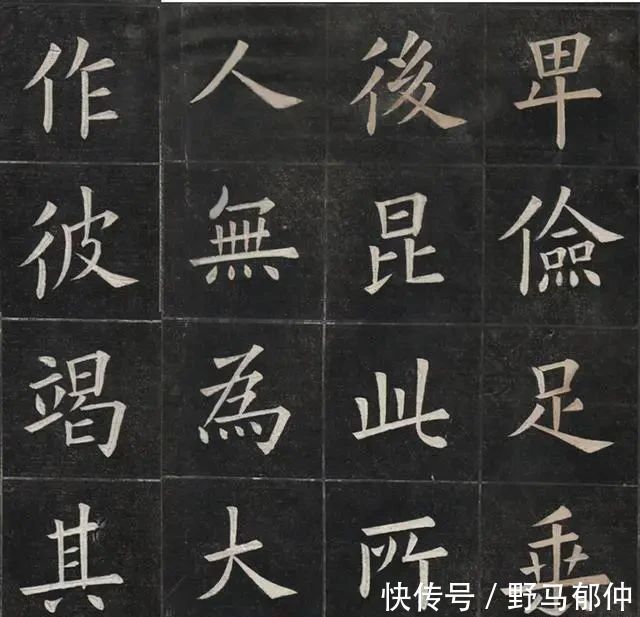 卑儉足垂
後昆此所
人無為大
作彼竭其
快传号 / 野马郁仲